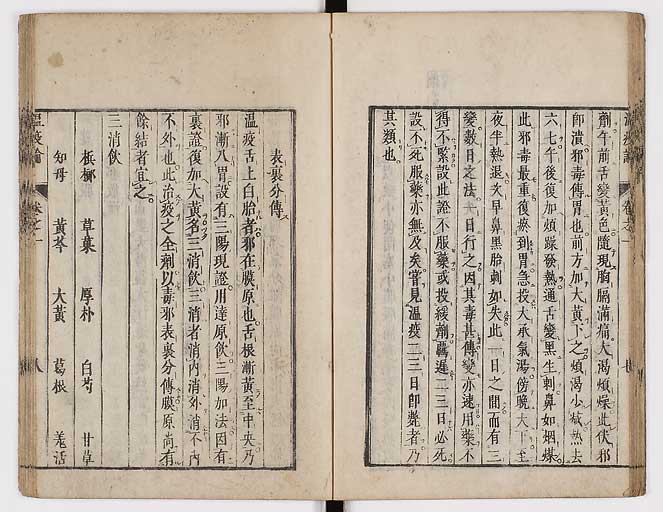 劑午前舌變黃色隨現胸膈滿痛大渴煩燥此伏邪
即潰邪毒傳胃也前方加大黃下之煩渴少減熱去
六七午後復加煩躁發熱通舌變黑生刺鼻如烟煤
此邪毒最重復瘀到胃急投大承氣湯傍晚大下至
夜半熱退次早鼻黑胎刺如失此一日之間而有三
變數日之法一日行之因其毒甚傳變亦速用藥不
得不緊設此證不服藥或投緩劑羈遲二三日必死
設不死服藥亦無及矣嘗見溫疫二三日即斃者乃
其類也
表裏分傳
溫疫舌上白胎者邪在膜原也舌根漸黃至中央乃
邪漸入胃設有三陽現證用達原飲三陽加法因有
裏證復加大黃名三消飲三消者消內消外消不內
不外也此治疫之全劑以毒邪表裏分傳膜原尚有
餘結者宜之
三消飲
檳榔 草菓 厚朴 白芍 甘草
知母 黃芩 大黃 葛根 羌活
溫疫論 卷之一 八